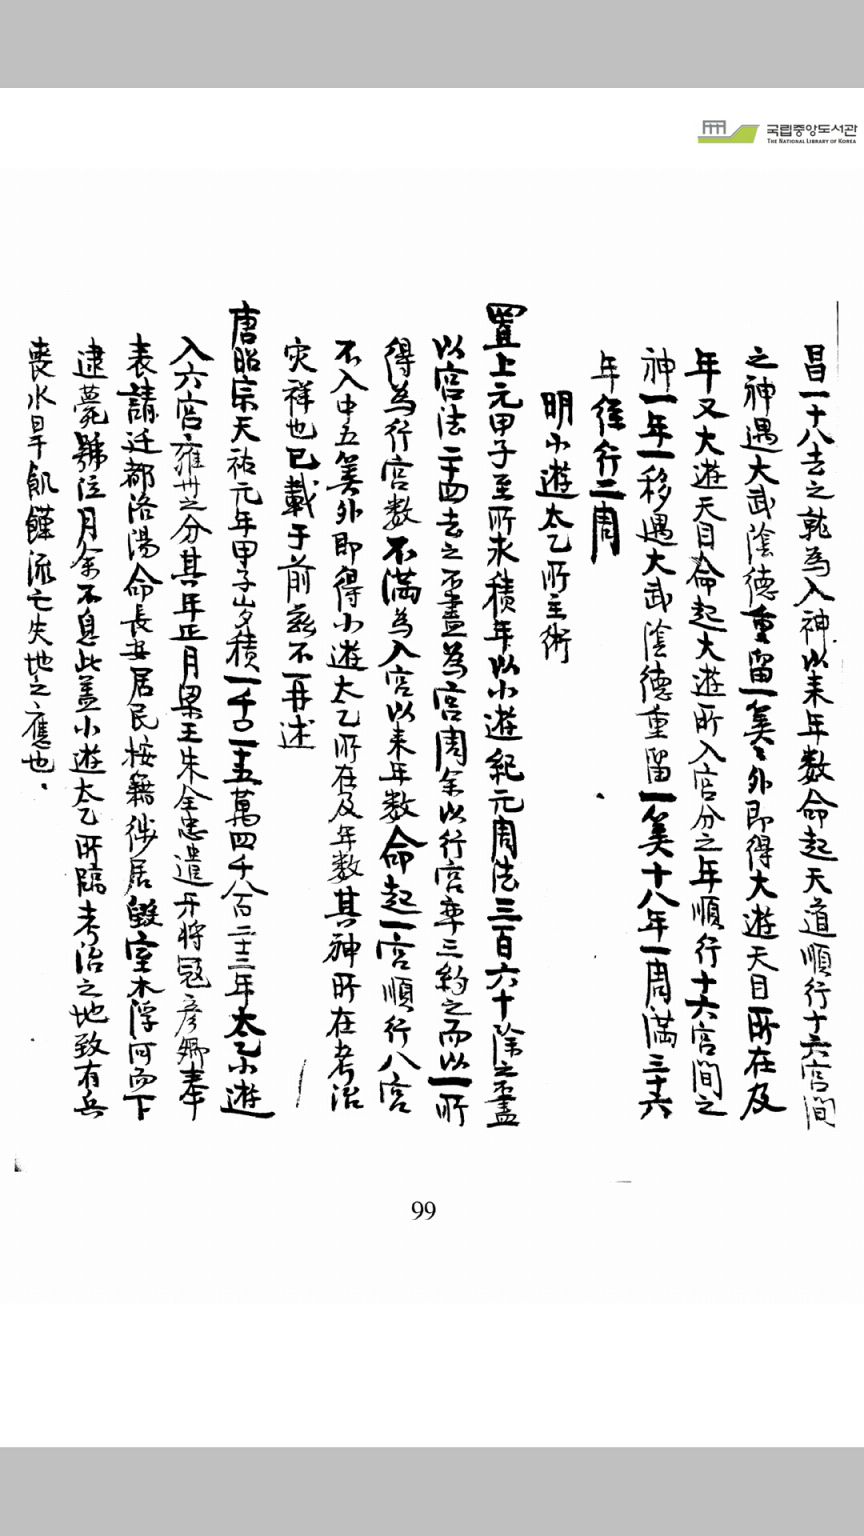 국립중앙도서관
THE NATIONAL LIBRARY OF KOREA
昌一十八去之㪽為入神以来年数命起天道順行十六宮間
之神遇大武陰德重留一筭〻外即得大遊天目所在及
年又大遊天目命起大遊所入宮分之年順行十六宮間之
神一年一移遇大武陰德重留一筭十八年一周滿三十六
年徑行二周
明小遊太乙所主術
置上元甲子至所求積年以小遊紀元周法三百六十除之不盡
以宮法二十四去之不盡為宮周余以行宮率三約之而以一所
得為行宮数不滿為入宮以来年数命起一宮順行八宮
不入中五筭外即得小遊太乙所在及年数其神所在考治
灾祥也已載于前茲不再述
唐昭宗天祐元年甲子岁積一千一十五萬四千八百二十三年太乙小遊
入六宮雍州之分其年正月梁王朱全忠遣牙將冦彦卿奉
表請迁都洛陽命長安居民按籍徙居毀室木浮河而下
逮薨號泣月余不息此盖小遊太乙所臨考治之地致有兵
喪水旱飢饉流亡失地之應也
99